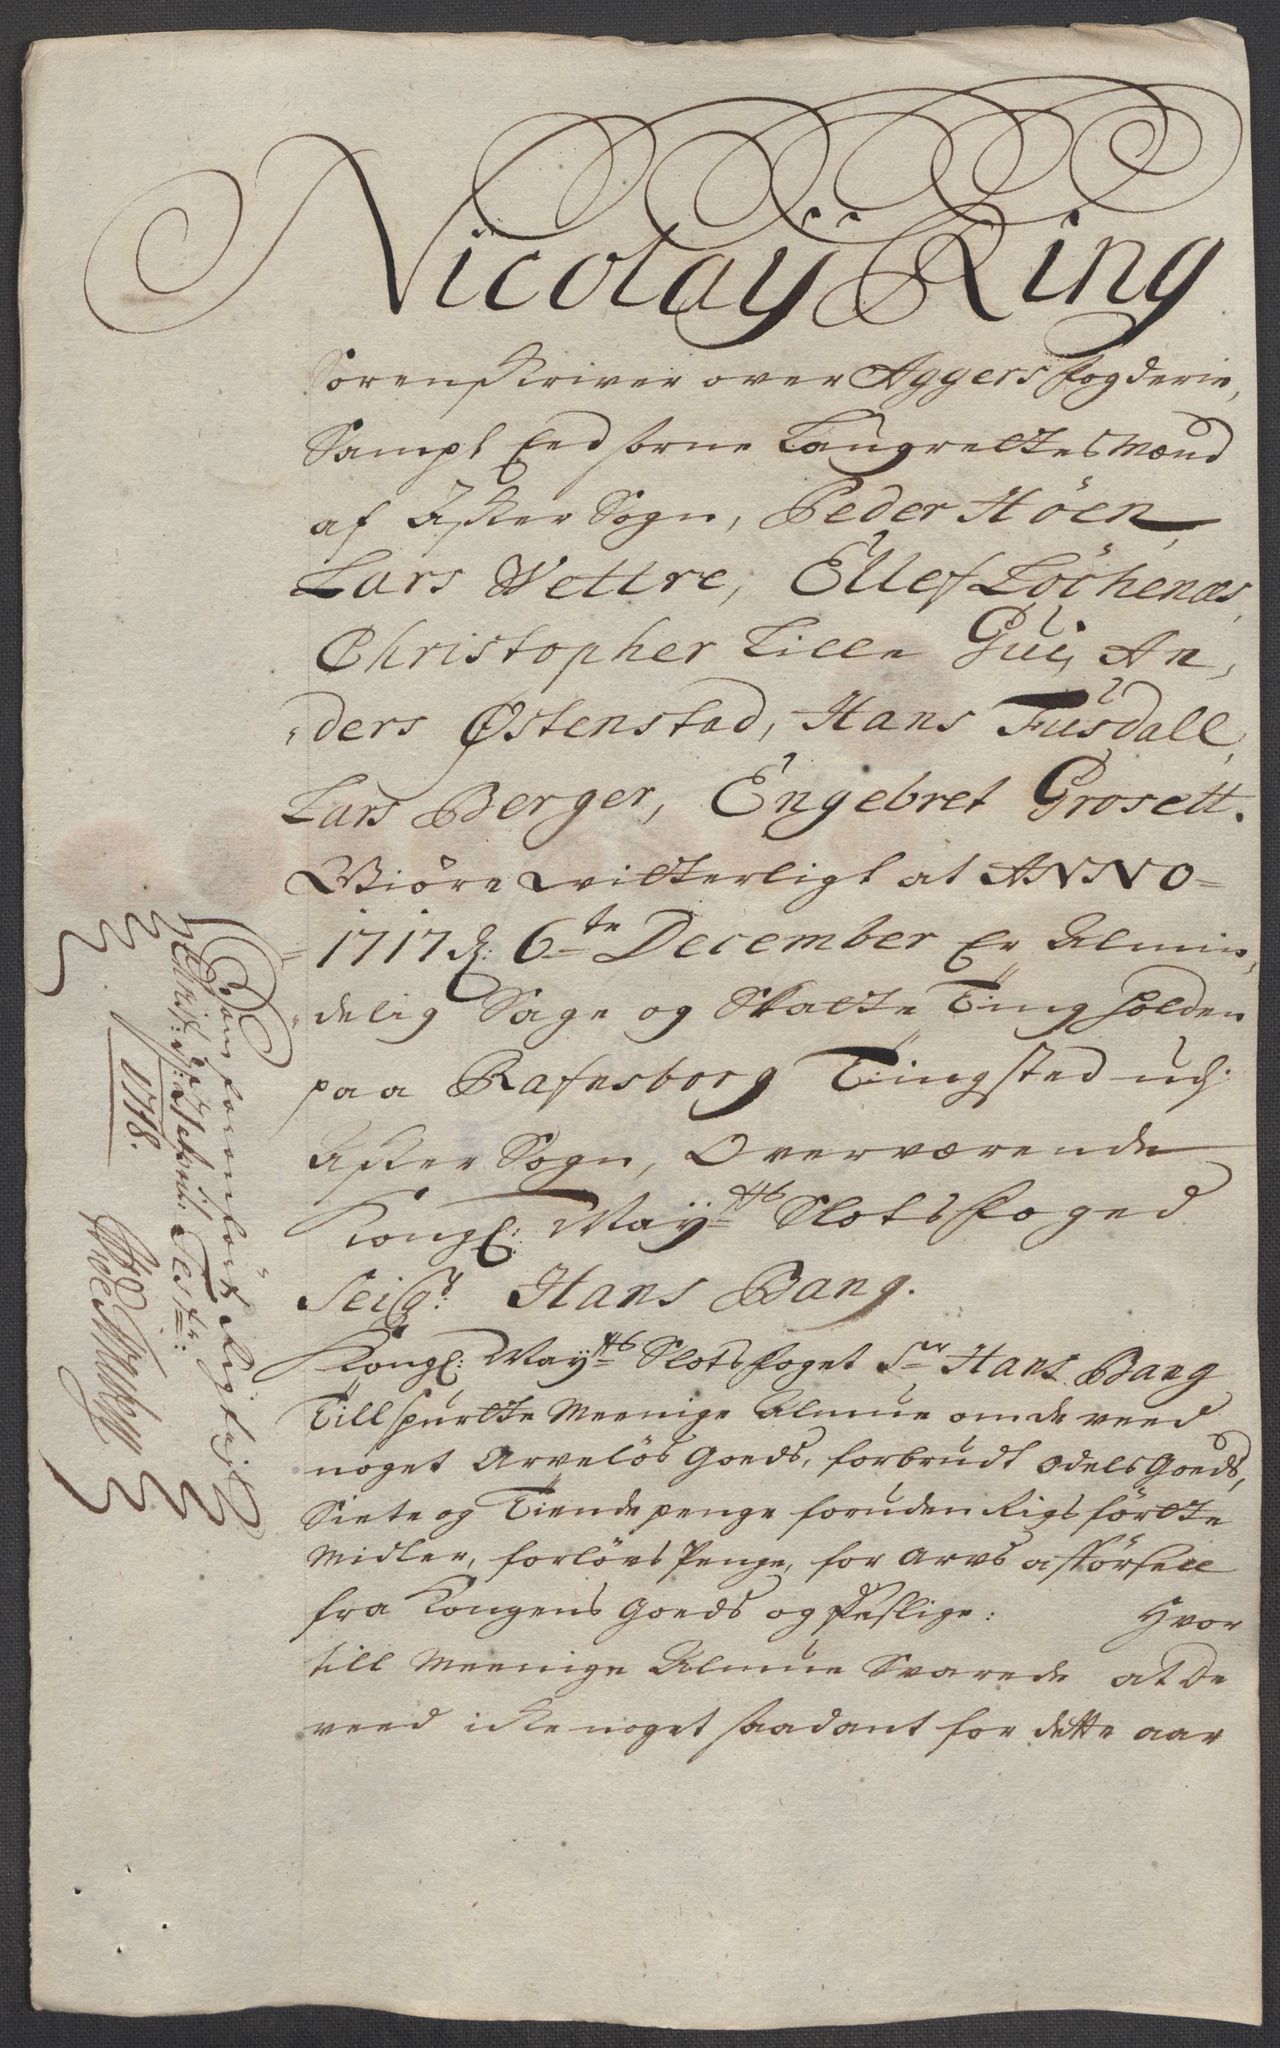 Nicolaÿ Ring
Sorenskriver over Aggers fogderie,
Sampt Eed sorne Laugrettes Mænd
af Asker Sogn, Peder Höen,
Lars Wettre, Ellef Löchenæs,
Christopher Lille Gui, An,
ders Østenstad, Hans Fusdall,
Lars Berger, Engebret Grosett.
Giöre witterligt at ANNO
1717 d: 6te December Er Almin,
delig Sage og Skatte Ting holden
paa Rafnsborg Tingsted udj
Asker Sogn, Overværende
Kongl: Maÿtts Slotsfoged
Seigr: Hans Bang.
Kongl: Maÿtts Slotsfoget Sr Hans Bang
Tillspurtte Meenige Almue om de veed
noget Arvelös Goeds, forbrudt Odels Goeds,
Siete og Tiende penge foruden Rigs förtte
Midler, forlövs Penge, for Arvs afförsell
fra Kongens Goeds og desslige: Hvor
till Meenige Almue Svarede at De
veed icke noget saadant for dette aar
Som foran fört Rigtig
Test:
1718.